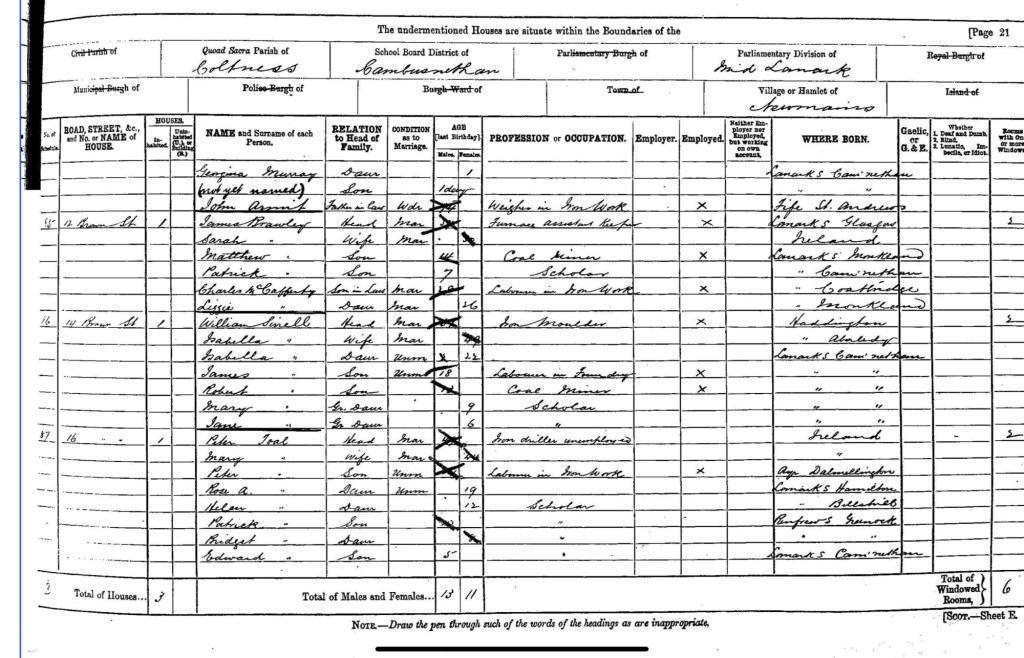 The undermentioned Houses are situate within the Boundaries of the [Page 21
Civil Parish of
Quoad Sacra Parish of
Coltness
School Board District of
Cambusnethan
Parliamentary Burgh of
Parliamentary Division of
Mid Lanark
Royal Burgh of
Municipal Burgh of
Police Burgh of
Burgh Ward of
Town of
Village or Hamlet of
Newmains
Island of
No. of Schedule.
ROAD, STREET, &c., and No. or NAME of HOUSE.
HOUSES.
Inhabited.
Uninhabited (U.), or Building (B.)
NAME and Surname of each Person.
RELATION to Head of Family.
CONDITION as to Marriage.
AGE [last Birthday].
Males. Females.
PROFESSION or OCCUPATION.
Employer.
Employed.
Neither Employer nor Employed, but working on own account.
WHERE BORN.
Gaelic, or G. & E.
Whether 1. Deaf and Dumb. 2. Blind. 3. Lunatic, Imbecile, or Idiot.
Rooms with One or more Windows
Georgina Murray Daur 1 Lanarks Cam'nethan
(not yet named) Son 1 day " "
John Father in Law Wdr Weigher in Iron Work x Fife St. Andrews
12 Brown St 1 James Brawley Head Mar Furnace assistant Keeper x Lanarks Glasgow 2
Sarah " Wife Mar Ireland
Matthew " Son 14 Coal Miner x Lanarks Monkland
Patrick " Son 7 Scholar " Cam'nethan
Charles McCafferty Son in Law Mar Labourer in Iron Work x " Coatbridge
Lizzie " Daur Mar 26 " Monkland
86 14 Brown St 1 William Head Mar Iron Moulder x Haddington 2
Isabella " Wife Mar "
Isabella " Daur Unm 22 Lanarks Cam'nethan
James " Son Unm 18 Labourer in Foundry x " "
Robert " Son Coal Miner x " "
Mary " Gr. Daur 9 Scholar " "
Jane " Gr Daur 6 " " "
87 16 " " 1 Peter Toal Head Mar Iron driller unemployed Ireland - 2
Mary " Wife Mar "
Peter " Son Unm Labourer in Iron Work x Ayr Dalmellington
Rose A. " Daur Unm 19 Lanarks Hamilton
Helen " Daur 12 Scholar " Bellshill
Patrick " Son " Renfrews Greenock
Bridget " Daur " " "
Edward " Son 5 " Lanarks Cam'nethan
Total of Houses... 3
Total of Males and Females... 13 11
Total of Windowed Rooms, 6
NOTE.—Draw the pen through such of the words of the headings as are inappropriate.
[SCOT.—Sheet E.